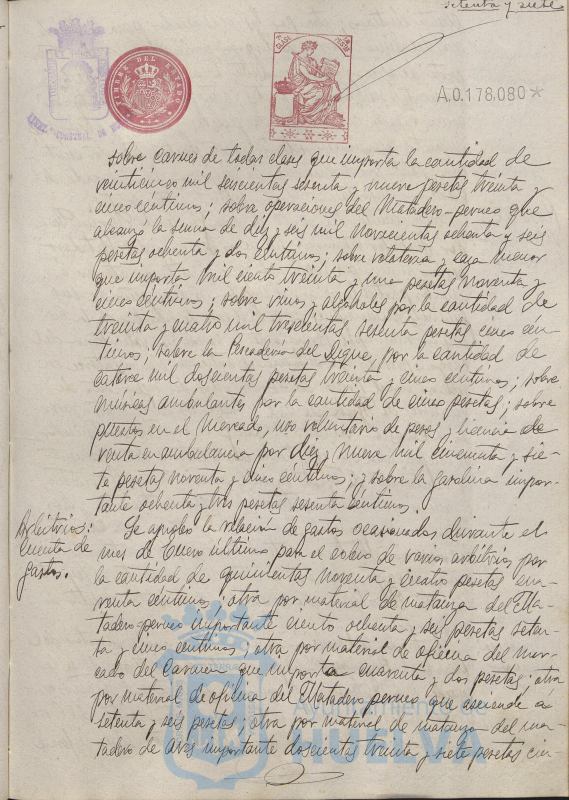 setenta y siete
TIMBRE DEL ESTADO
A.0.178.080*
sobre carnes de todas clases que importa la cantidad de
veinticinco mil seiscientas sesenta y nueve pesetas treinta y
cinco centimos; sobre operaciones del Matadero-perneo que
alcanzó la suma de diez y seis mil novecientas ochenta y seis
pesetas ochenta y dos centimos; sobre volatería y caza menor
que importa mil ciento treinta y una pesetas noventa y
cinco centimos; sobre vinos y alcoholes por la cantidad de
treinta y cuatro mil trescientas sesenta pesetas cinco cén-
timos; sobre la Pescadería del Dique, por la cantidad de
catorce mil doscientas pesetas treinta y cinco centimos; sobre
músicas ambulantes por la cantidad de cinco pesetas; sobre
puestos en el Mercado, uso voluntario de pesos y licencia de
venta en ambulancia por diez y nueve mil cincuenta y sie-
te pesetas noventa y cinco céntimos; y sobre la gasolina impor-
tante ochenta y tres pesetas sesenta centimos.
Arbitrios:
Cuenta de
gastos.
Se aprobó la relación de gastos ocasionados durante el
mes de Enero último para el cobro de varios arbitrios por
la cantidad de quinientas noventa y cuatro pesetas cua-
renta centimos; otra por material de matanza del Ma-
tadero-perneo importante ciento ochenta y seis pesetas seten-
ta y cinco centimos; otra por material de oficina del mer-
cado del Carmen que importa cuarenta y dos pesetas; otra
por material de oficina del Matadero perneo que asciende a
setenta y seis pesetas; otra por material de matanza del ma-
tadero de aves importante doscientas treinta y siete pesetas cin
HUELVA